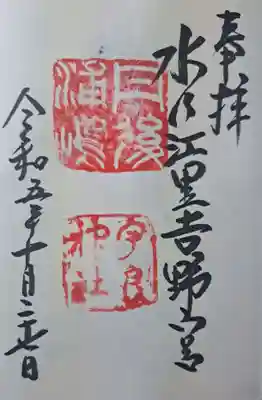 奉拝
水乃江里吉野宮
丹後
浦嶋
宇良
神社
令和五年十月二七日